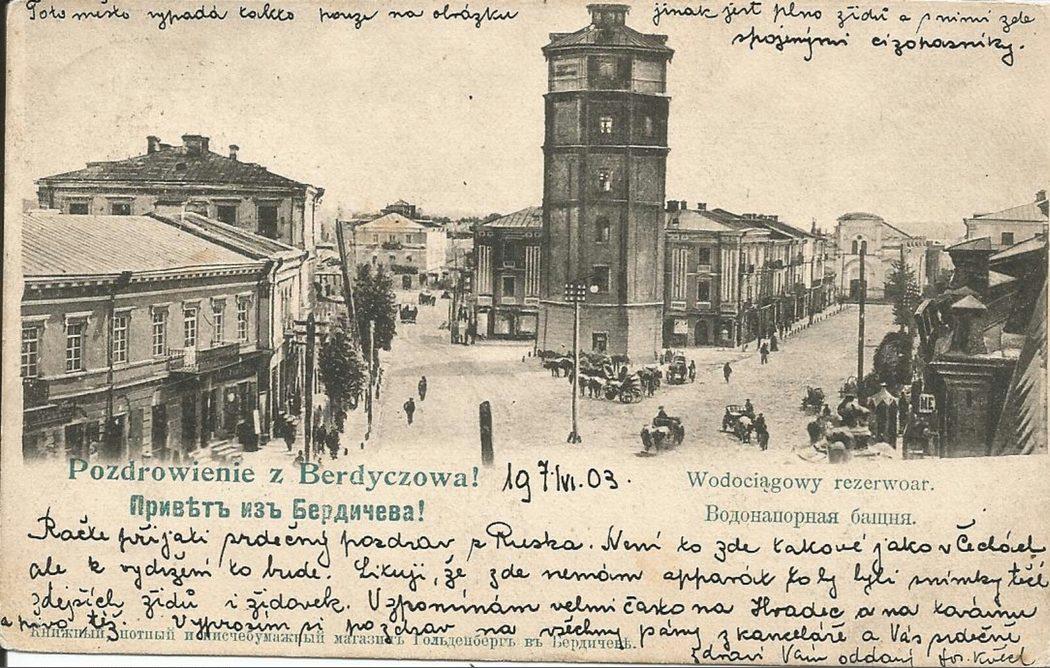 Toto město vypadá takto pouze na obrázku
jinak jest plno židů a s nimi zde
spojenými cizopasníky.
ME
Pozdrowienie z Berdyczowa!
Привѣтъ изъ Бердичева!
19 7/VI. 03.
Wodociągowy rezerwoar.
Водонапорная башня.
Račte přijati srdečný pozdrav z Ruska. Není to zde takové jako v Čechách
ale k vydržení to bude. Lituji, že zde nemám apparát to by byli snímky těch
zdejších židů i židovek. Vzpomínám velmi často na Hradec a na kavárnu
a pivo též. Vyprosim si pozdrav na všechny pány z kanceláře a Vás srdečně
Книжный, нотный и писчебумажный магазинъ Гольденбергъ въ Бердичевѣ.
zdraví Vám oddaný Jos.